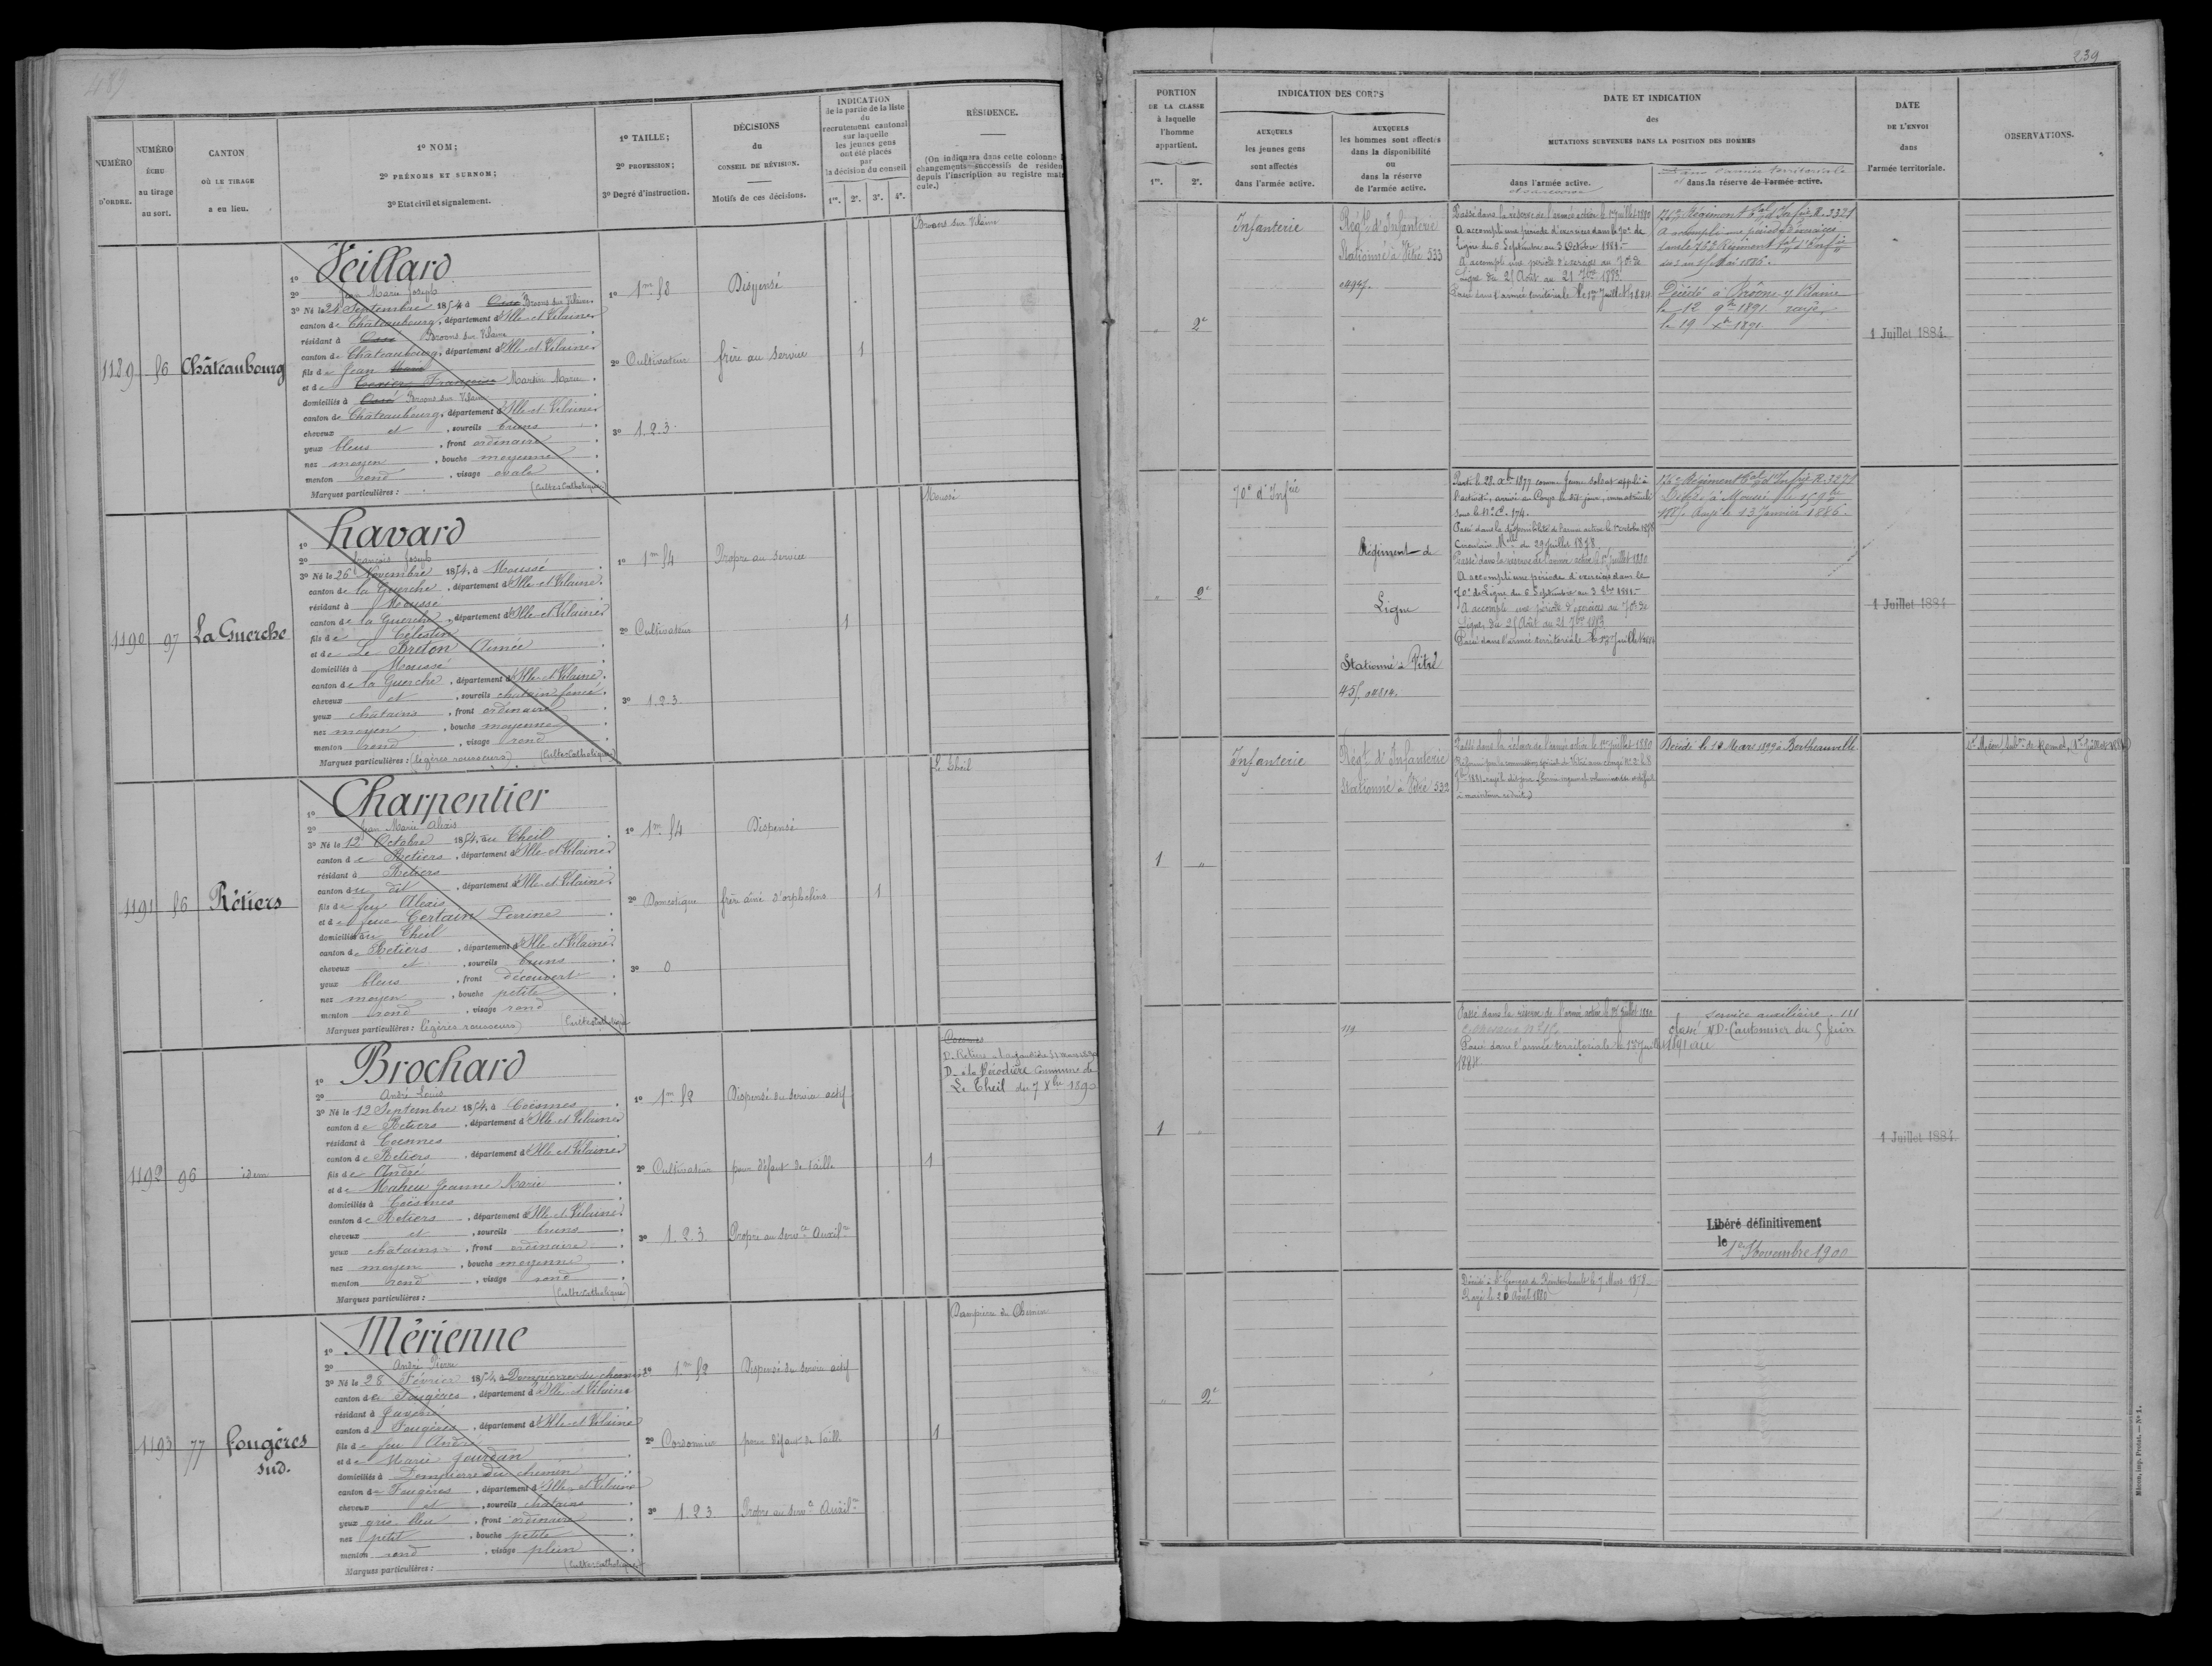 239
NUMÉRO D'ORDRE.
NUMÉRO ÉCHU au tirage au sort.
CANTON OÙ LE TIRAGE a eu lieu.
1º NOM;
2º PRÉNOMS ET SURNOM;
3º Etat civil et signalement.
1º TAILLE;
2º PROFESSION;
3º Degré d'instruction.
DÉCISIONS
du
CONSEIL DE RÉVISION.
Motifs de ces décisions.
INDICATION
de la partie de la liste
du
recrutement cantonal
sur laquelle
les jeunes gens
ont été placés
par
la décision du conseil
1re. 2e. 3e. 4e.
RÉSIDENCE.
(On indiquera dans cette colonne
changements successifs de
depuis l'inscription au registre
cule.)
1189
56
Châteaubourg
1º Veillard
2º Jean Marie Joseph
3º Né le 24 Septembre 1854, à Ossé Broons sur Vilaine
canton de Châteaubourg, département d'Ille-et-Vilaine
résidant à Ossé Broons sur Vilaine
canton de Châteaubourg, département d'Ille-et-Vilaine
fils de Jean
et de Françoise Martin Marie
domiciliés à Ossé Broons sur Vilaine
canton de Châteaubourg, département d'Ille-et-Vilaine
cheveux et, sourcils bruns
yeux bleus, front ordinaire
nez moyen, bouche moyenne
menton rond, visage ovale
Marques particulières : (Culte Catholique)
1º 1m 58
2º Cultivateur
3º 1.2.3.
Dispensé
frère au service
1
Broons sur Vilaine
1190
97
La Guerche
1º Havard
2º François Joseph
3º Né le 26 Novembre 1854, à Moussé
canton de la Guerche, département d'Ille-et-Vilaine
résidant à Moussé
canton de la Guerche, département d'Ille-et-Vilaine
fils de Célestin
et de Le Breton Aimée
domiciliés à Moussé
canton de la Guerche, département d'Ille-et-Vilaine
cheveux et, sourcils chatain foncé
yeux châtains, front ordinaire
nez moyen, bouche moyenne
menton rond, visage rond
Marques particulières : (légères rousseurs) (Culte Catholique)
1º 1m 54
2º Cultivateur
3º 1.2.3.
Propre au service
1
Moussé
1191
56
Rétiers
1º Charpentier
2º Jean Marie Alexis
3º Né le 12 Octobre 1854, au Theil
canton de Retiers, département d'Ille-et-Vilaine
résidant à Retiers
canton du dit, département d'Ille-et-Vilaine
fils de feu Alexis
et de feue Certain Perrine
domiciliés au Theil
canton de Retiers, département d'Ille-et-Vilaine
cheveux et, sourcils bruns
yeux bleus, front découvert
nez moyen, bouche petite
menton rond, visage rond
Marques particulières : légères rousseurs) (Culte Catholique
1º 1m 54
2º Domestique
3º 0
Dispensé
frère aîné d'orphelins
1
Le Theil
1192
96
idem
1º Brochard
2º André Louis
3º Né le 12 Septembre 1854, à Coësmes
canton de Retiers, département d'Ille et Vilaine
résidant à Coesmes
canton de Retiers, département d'Ille et Vilaine
fils de André
et de Maheu Jeanne Marie
domiciliés à Coësmes
canton de Retiers, département d'Ille et Vilaine
cheveux et, sourcils bruns
yeux chatains, front ordinaire
nez moyen, bouche moyenne
menton rond, visage rond
Marques particulières : (Culte Catholique)
1º 1m 52
2º Cultivateur
3º 1.2.3.
Dispensé du service actif
pour défaut de taille
Propre au servce Auxilre
1
Coesmes
D. Retiers
D. à la commune de
Le Theil du 7 Xbre 1890
1193
77
Fougères
sud.
1º Mérienne
2º André Pierre
3º Né le 28 Février 1854, à Dompierre du chemin
canton de Fougères, département d'Ille-et-Vilaine
résidant à Javené
canton de Fougères, département d'Ille-et-Vilaine
fils de feu André
et de Marie Jourdan
domiciliés à Dompierre du chemin
canton de Fougères, département d'Ille-et-Vilaine
cheveux et, sourcils chatains
yeux gris bleu, front ordinaire
nez petit, bouche petite
menton rond, visage plein
Marques particulières : (Culte Catholique)
1º 1m 52
2º Cordonnier
3º 1.2.3.
Dispensé du service actif
pour défaut de taille
Propre au servce Auxilre
1
Dompierre du Chemin
PORTION
DE LA CLASSE
à laquelle
l'homme
appartient.
1re. 2e.
INDICATION DES CORPS
AUXQUELS
les jeunes gens
sont affectés
dans l'armée active.
AUXQUELS
les hommes sont affectés
dans la disponibilité
ou
dans la réserve
de l'armée active.
DATE ET INDICATION
des
MUTATIONS SURVENUES DANS LA POSITION DES HOMMES
dans l'armée active.
et sa réserve
Dans l'armée territoriale
et dans la réserve de l'armée active.
DATE
DE L'ENVOI
dans
l'armée territoriale.
OBSERVATIONS.
" 2e
Infanterie
Régt d'Infanterie
Stationné à Vitré 533
Passé dans la réserve de l'armée active le 1er juillet 1880
A accompli une période d'exercices dans le 70e de
Ligne du 6 Septembre au 3 Octobre 1881.
A accompli une période d'exercices au 70e de
Ligne du 25 Août au 21 7bre 1883
Passé dans l'armée territoriale le 1er Juillet 1884
76e Régiment Tal d'Infie R. 3321
A accompli une période d'exercices
dans le 76e Régiment Tal d'Infie
Décédé à
le 12 9bre 1891 rayé
le 19 Xbre 1891
1 Juillet 1884
" 2e
70e d'Infie
Régiment de
Ligne
Stationné à Vitré
Parti le 28 Xbre 1877 comme Jeune soldat appelé à
l'activité, arrivé au Corps le dit jour, immatriculé
sous le No
Passé dans la disponibilité de l'armée active le 1er octobre 1878
Circulaire Mlle du 29 juillet 1878
Passé dans la réserve de l'armée active le 1er juillet 1880
A accompli une période d'exercices dans le
70e de Ligne du 6 Septembre au 3 8bre 1881
A accompli une période d'exercices au 70e de
Ligne du 25 Août au 21 7bre 1883
Passé dans l'armée territoriale le 1er Juillet 1884
76e Régiment Tal d'Infie R. 3278
Décédé à Moussé le 15 9bre
1885. Rayé le 13 Janvier 1886.
1 Juillet 1884
1 "
Infanterie
Régt d'Infanterie
Stationné à Vitré 532
Passé dans la réserve de l'armée active le 1er juillet 1880
Réformé par la commission spéciale de Vitré
Décédé le 10 Mars 1899 à Bertheauville
1 "
Passé dans la réserve de l'armée active le 1er Juillet 1880
Passé dans l'armée territoriale le 1er Juillet
1884
service auxiliaire. 111
classé N.D. Cantonnier du 5 Juin
1891 au
Libéré définitivement
le 1er Novembre 1900
1 Juillet 1884.
" 2e
Décédé à St Georges de Reintembault le 7 Mars 1878
Rayé le 20 Août 1880
Mâcon, imp. Protat. — No 1.